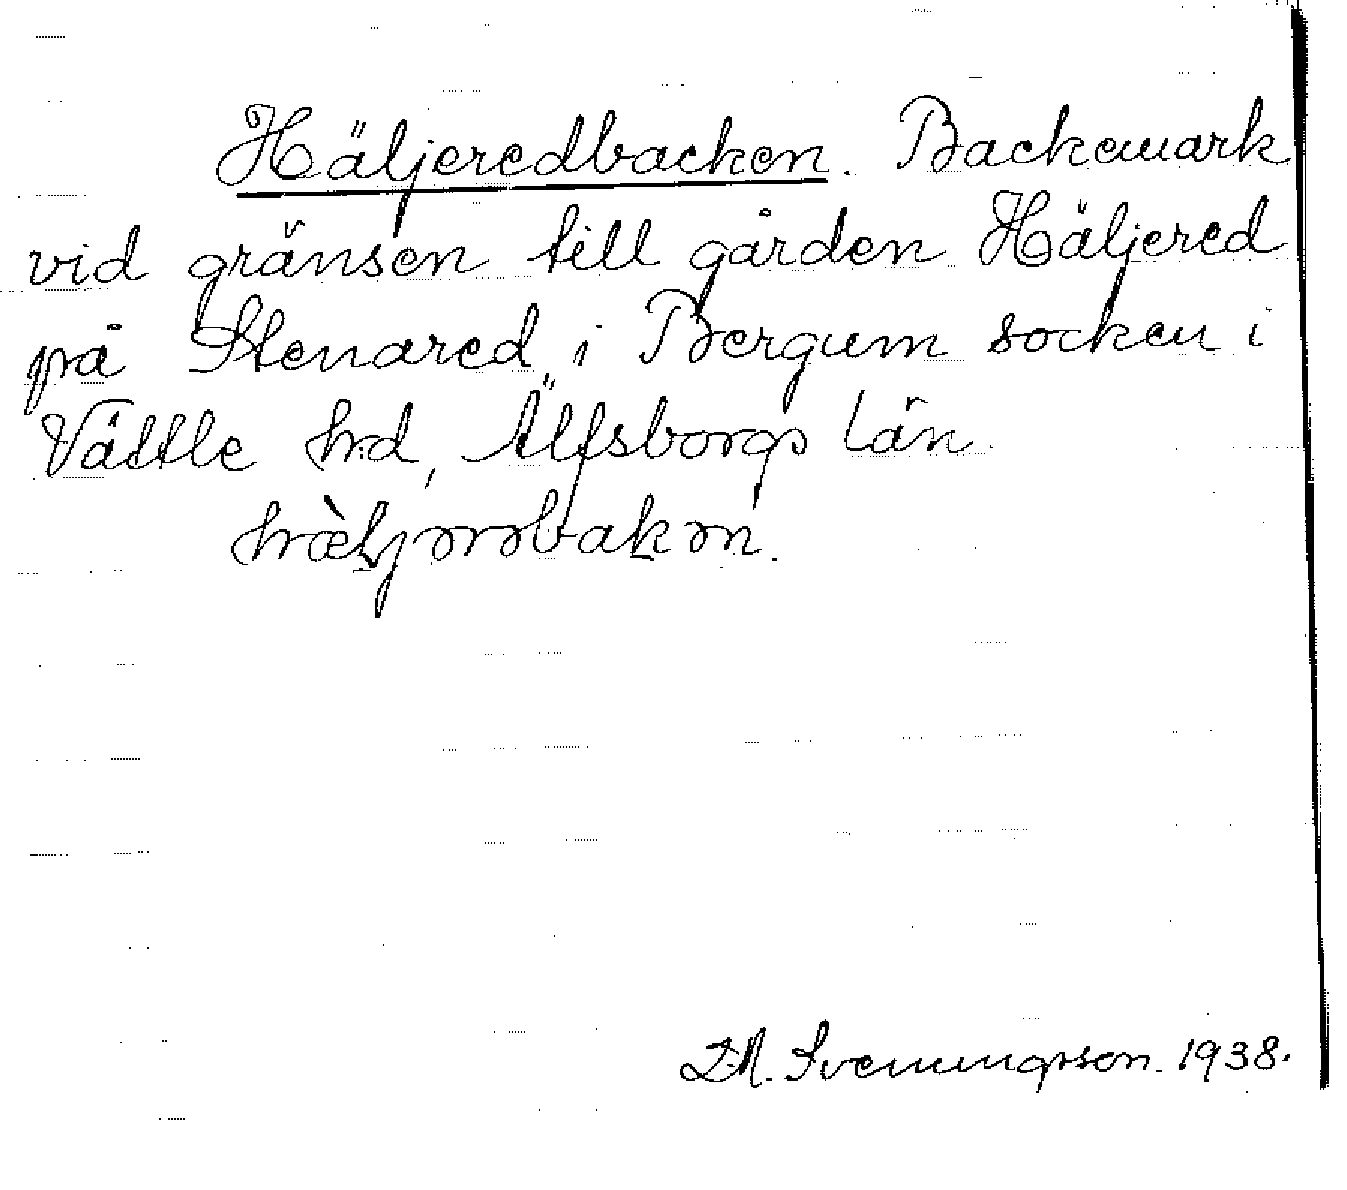 Häljeredbacken. Backemark
vid gränsen till gården Häljered
på Stenared i Bergum socken i
Vättle hrd, Älfsborgs län.
Svenningsson. 1938.